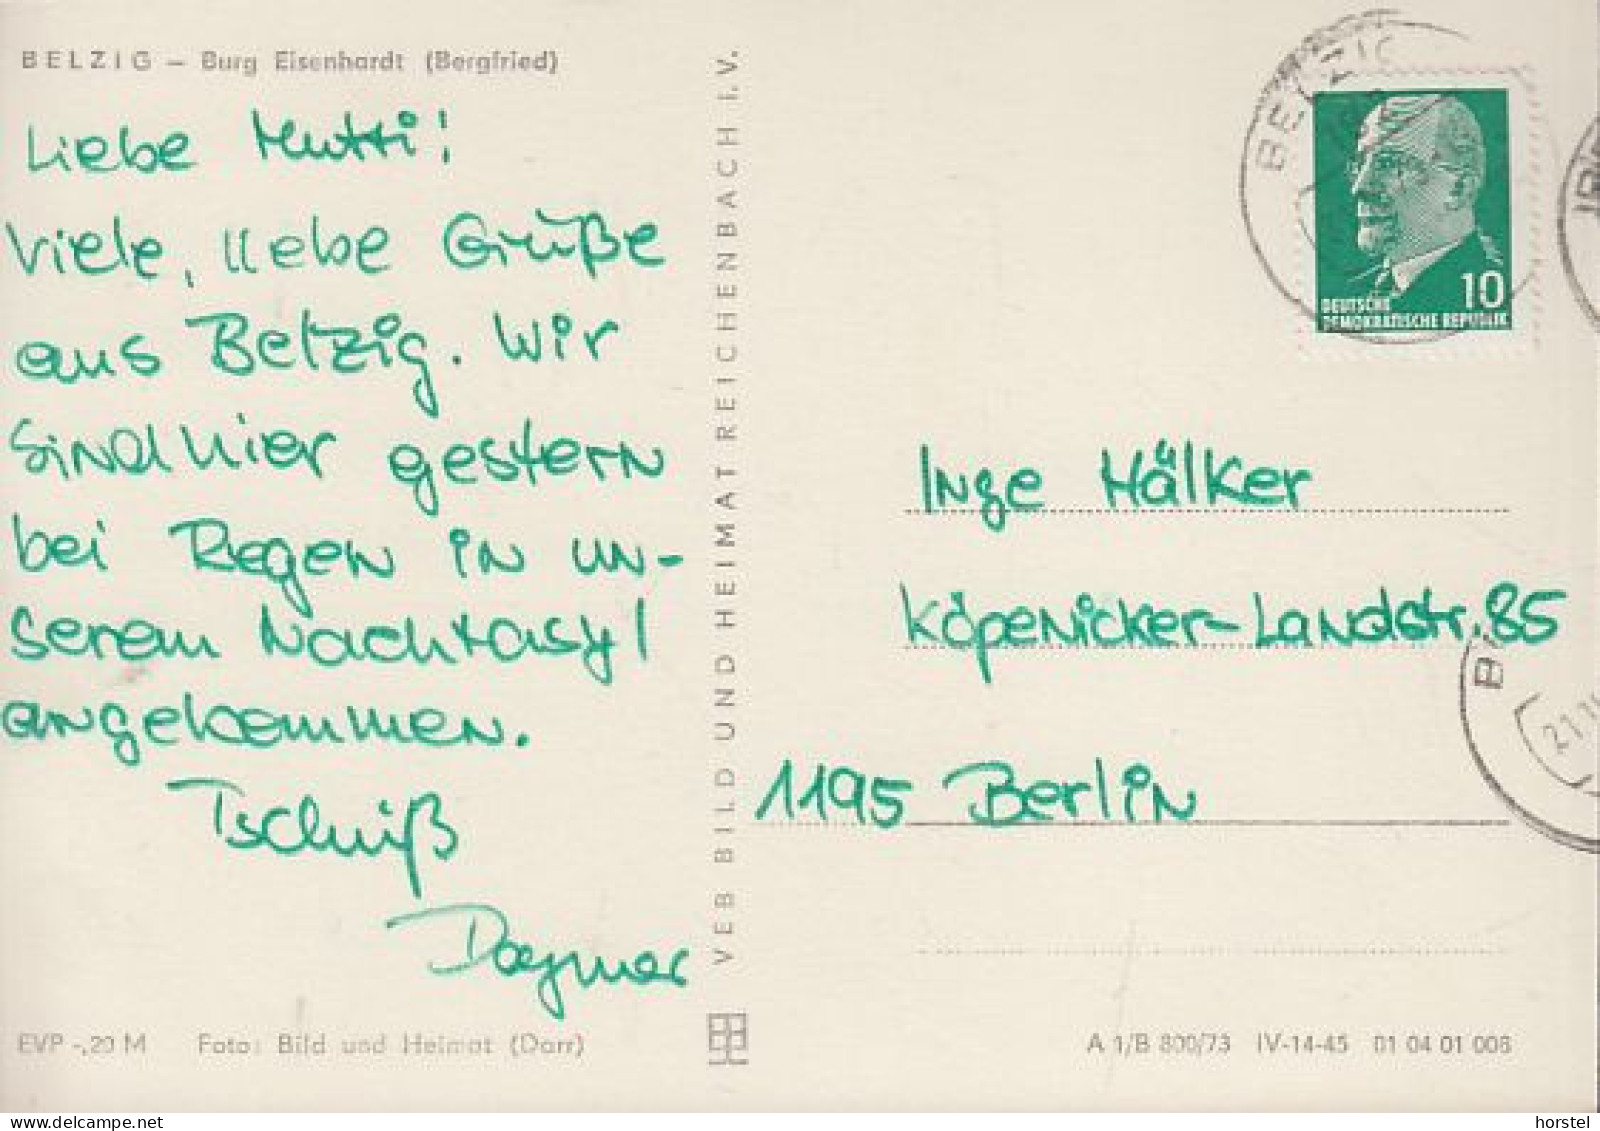 BELZIG – Burg Eisenhardt (Bergfried)
Liebe Mutti!
Viele, liebe Grüße
aus Belzig. Wir
sind hier gestern
bei Regen in un-
serem Nachtasyl
angekommen.
Tschüß
Dagmar
EVP -,20 M Foto: Bild und Heimat (Darr)
VEB BILD UND HEIMAT REICHENBACH I. V.
BELZIG
10
DEUTSCHE
DEMOKRATISCHE REPUBLIK
Inge Hälker
Köpenicker-Landstr. 85
1195 Berlin
21.10
A 1/B 800/73 IV-14-45 01 04 01 006
horstel
www.delcampe.net